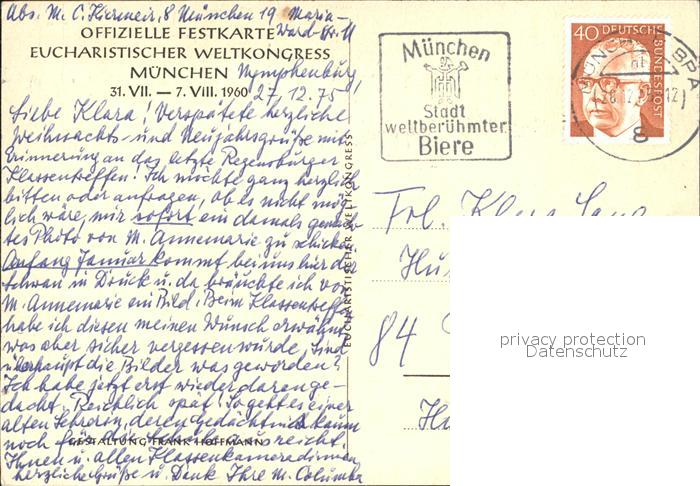 Abs. M. C. Kiermeir, 8 München 19 Maria-
Ward-Str. 11
OFFIZIELLE FESTKARTE
EUCHARISTISCHER WELTKONGRESS
MÜNCHEN Nymphenburg,
31. VII. — 7. VIII. 1960 27.12.75
Liebe Klara! Verspätete herzliche
Weihnachts- und Neujahrsgrüße mit
Erinnerung an das letzte Regensburger
Klassentreffen! Ich möchte ganz herzlich
bitten oder anfragen, ob es nicht mög-
lich wäre, mir sofort ein damals gemach-
tes Photo von M. Annemarie zu schicken.
Anfang Januar kommt bei uns hier der
Schwan in Druck u. da bräuchte ich von
M. Annemarie ein Bild. Beim Klassentreffen
habe ich diesen meinen Wunsch erwähnt,
was aber sicher vergessen wurde. Sind
überhaupt die Bilder was geworden?
Ich habe jetzt erst wieder daran ge-
dacht. Reichlich spät! So geht es einer
alten Lehrerin, deren Gedächtnis kaum
noch reicht.
GESTALTUNG FRANK HOFFMANN
Ihnen u. allen Klassenkameradinnen
herzliche Grüße u. Dank Ihre M. Columba
EUCHARISTISCHER WELTKONGRESS
München
Stadt
weltberühmter
Biere
40 DEUTSCHE
BUNDESPOST
MÜNCHEN BPA
8
Frl.
84
privacy protection
Datenschutz